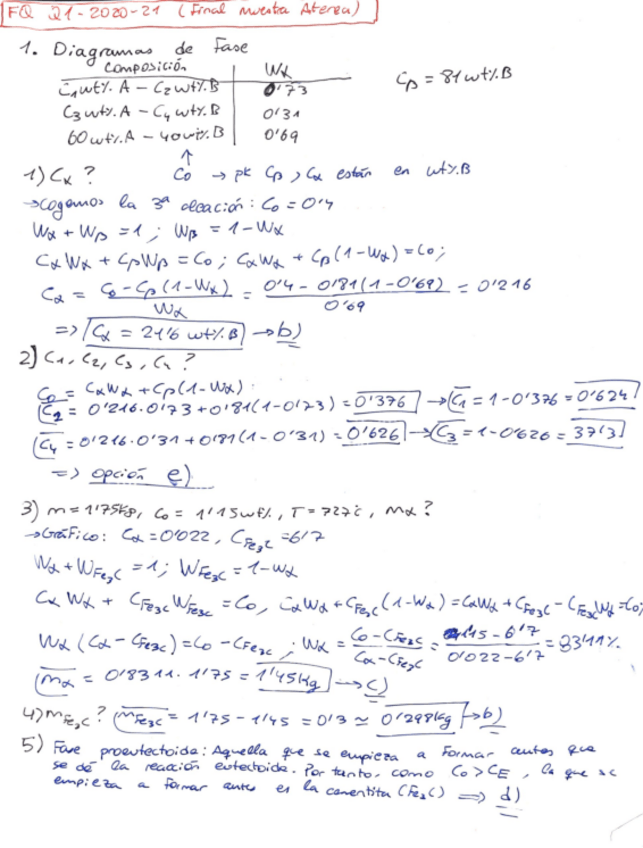 FQ Q1-2020-21 (Final Muestra Atenea)
1. Diagramas de Fase
Composición Wα
C₁wt%A - C₂wt%B 0'73
C₃wt%A - C₄wt%B 0'31
60wt%A - 40wt%B 0'69
Cβ = 81wt%B
↑
1) Cα? C₀ → pk Cβ, Cα están en wt%B
→ Cogemos la 3ª aleación: C₀ = 0'4
Wα + Wβ = 1; Wβ = 1-Wα
CαWα + CβWβ = C₀; CαWα + Cβ(1-Wα) = C₀;
Cα = (C₀ - Cβ(1-Wα))/Wα = (0'4 - 0'81(1-0'69))/0'69 = 0'216
=> Cα = 21'6 wt%B → b)
2) C₁, C₂, C₃, C₄?
C₀ = CαWα + Cβ(1-Wα).
C₂ = 0'216·0'73 + 0'81(1-0'73) = 0'376 → C₁ = 1-0'376 = 0'624
C₄ = 0'216·0'31 + 0'81(1-0'31) = 0'626 → C₃ = 1-0'626 = 37'3
=> opción e)
3) m = 1'75kg, C₀ = 1'15wt%, T = 727ºC, mα?
→ Gráfico: Cα = 0'022, C_Fe₃C = 6'7
Wα + W_Fe₃C = 1; W_Fe₃C = 1-Wα
CαWα + C_Fe₃C W_Fe₃C = C₀, CαWα + C_Fe₃C(1-Wα) = CαWα + C_Fe₃C - C_Fe₃C Wα = C₀;
Wα(Cα - C_Fe₃C) = C₀ - C_Fe₃C; Wα = (C₀ - C_Fe₃C)/(Cα - C_Fe₃C) = (1'15 - 6'7)/(0'022 - 6'7) = 83'11%
mα = 0'8311·1'75 = 1'45kg → c)
4) m_Fe₃C? m_Fe₃C = 1'75 - 1'45 = 0'3 ≃ 0'298kg → b)
5) Fase proeutectoide: Aquella que se empieza a formar antes que
se dé la reacción eutectoide. Por tanto, como C₀ > C_E, la que se
empieza a formar antes es la cementita (Fe₃C) => d)